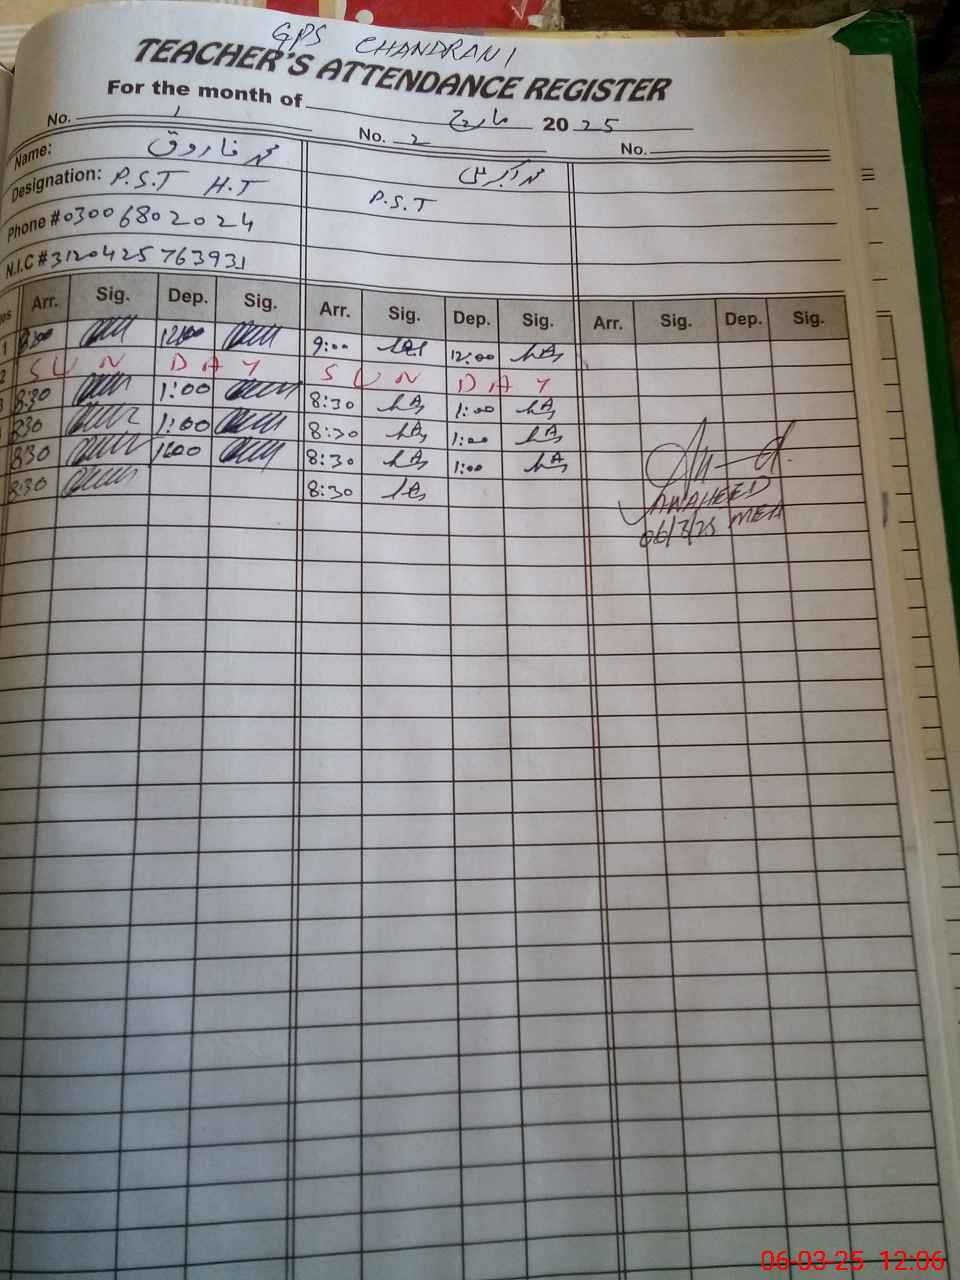 GPS CHANDRANI
TEACHER'S ATTENDANCE REGISTER
For the month of مارچ 2025
No. 1 No. 2 No.
Name: محمد فاروق
Designation: P.S.T H.T P.S.T
Phone # 03006802024
N.I.C # 3120425763931
Arr. Sig. Dep. Sig. Arr. Sig. Dep. Sig. Arr. Sig. Dep. Sig.
1 12:00 9:00 12:00
2 SUN DAY SUN DAY
3 8:30 1:00 8:30 1:00
8:30 1:00 8:30 1:00
8:30 1:00 8:30 1:00
8:30 8:30
WAHEED
06/3/25 MEA
06-03-25 12:06